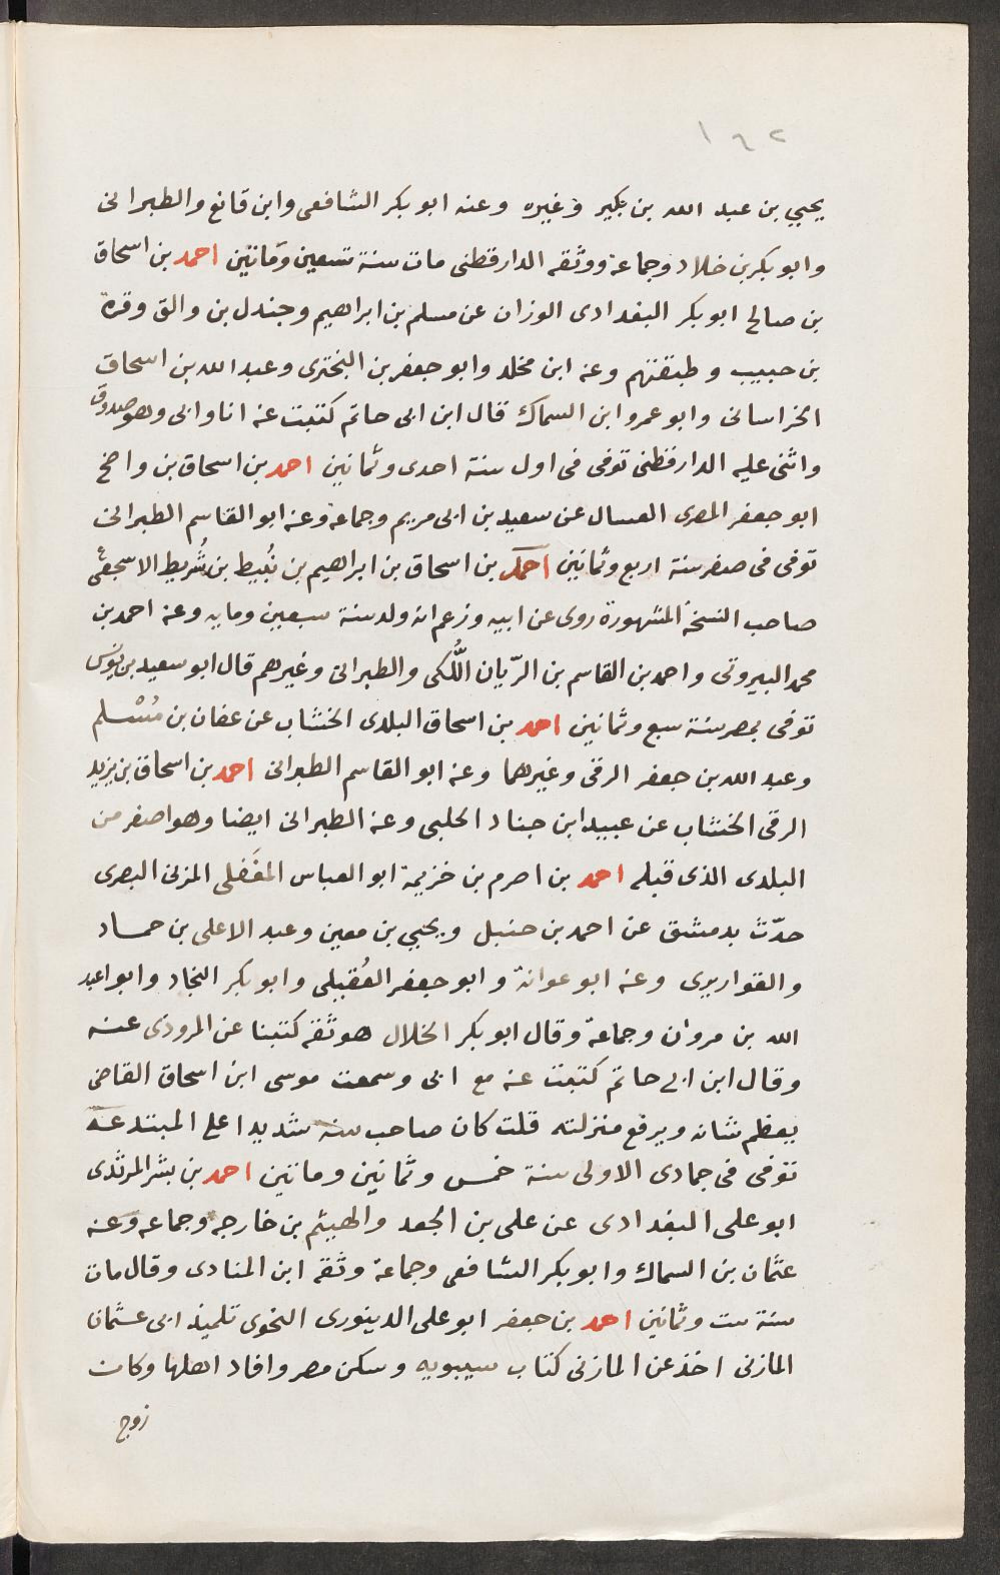 ١٦٢
يحيي بن عبد الله بن بكير وغيره وعنه ابو بكر الشافعى وابن قانع والطبرانى
وابو بكر بن خلاد وجماعة ووثقه الدارقطنى مات سنة تسعين ومأتين احمد بن اسحاق
بن صالح ابو بكر البغدادى الوزان عن مسلم بن ابراهيم وجندل بن والق وقرة
بن حبيب وطبقتهم وعنه ابن مخلد وابو جعفر بن البخترى وعبد الله بن اسحاق
الخراسانى وابو عمرو ابن السماك قال ابن ابى حاتم كتبت عنه انا وابى وهو صدوق
واثنى عليه الدارقطنى توفى فى اول سنة احدى وثمانين احمد بن اسحاق بن واضح
ابو جعفر المصرى العسال عن سعيد بن ابى مريم وجماعة وعنه ابو القاسم الطبرانى
توفى فى صفر سنة اربع وثمانين احمد بن اسحاق بن ابراهيم بن نُبيط بن شُريط الاسجعى
صاحب النسخة المشهورة روى عن ابيه وزعم انه ولد سنة سبعين ومايه وعنه احمد بن
محمد البيروتى واحمد بن القاسم بن الرّيان اللُّكى والطبرانى وغيرهم قال ابو سعيد بن يونس
توفى بمصر سنة سبع وثمانين احمد بن اسحاق البلدى الخشاب عن عفان بن مُسْلم
وعبد الله بن جعفر الرقى وغيرهما وعنه ابو القاسم الطبرانى احمد بن اسحاق بن يزيد
الرقى الخشاب عن عبيد ابن جناد الحلبى وعنه الطبرانى ايضا وهو اصغر من
البلدى الذى قبله احمد بن اصرم بن خزيمة ابو العباس المغَفلى المزنى البصرى
حدّث بدمشق عن احمد بن حنبل ويحيي بن معين وعبد الاعلى بن حماد
والقواريرى وعنه ابو عوانة وابو جعفر العُقيلى وابو بكر النجاد وابو عبد
الله بن مروان وجماعة وقال ابو بكر الخلال هو ثقة كتبنا عن المروذى عنه
وقال ابن ابى حاتم كتبت عنه مع ابى وسمعت موسى ابن اسحاق القاضى
يعظم شانه ويرفع منزلته قلت كان صاحب سنة شديدا على المبتدعة
توفى فى جمادى الاولى سنة خمس وثمانين وماتين احمد بن بشر المرثدى
ابو على البغدادى عن على بن الجعد والهيثم بن خارجه وجماعه وعنه
عثمان بن السماك وابو بكر الشافعى وجماعة وثقه ابن المنادى وقال مات
سنة ست وثمانين احمد بن جعفر ابو على الدينورى النحوى تلميذ ابى عثمان
المازنى اخذ عن المازنى كتاب سيبويه وسكن مصر وافاد اهلها وكان
زوج